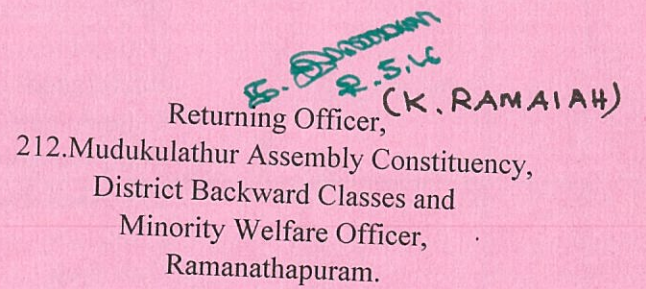 (K. RAMAIAH)
Returning Officer,
212.Mudukulathur Assembly Constituency,
District Backward Classes and
Minority Welfare Officer,
Ramanathapuram.